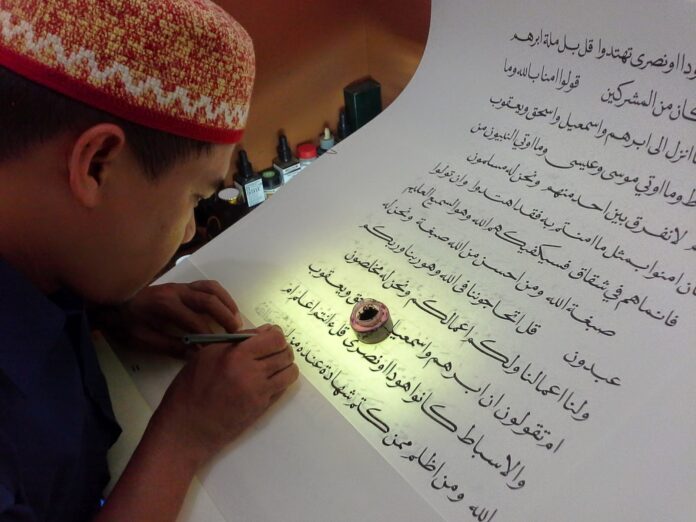 ودا او نصرى تهتدوا قل بل ملة ابرهم
كان من المشركين قولوا امنا بالله وما
انزل الى ابرهم واسمعيل واسحق ويعقوب
وما اوتى موسى وعيسى وما اوتى النبيون من
لا نفرق بين احد منهم ونحن له مسلمون
امنوا بمثل ما امنتم به فقد اهتدوا وان تولوا
فانما هم فى شقاق فسيكفيكهم الله وهو السميع العليم
صبغة الله ومن احسن من الله صبغة ونحن له
عبدون قل اتحاجوننا فى الله وهو ربنا وربكم
ولنا اعمالنا ولكم اعمالكم ونحن له مخلصون
ام تقولون ان ابرهم واسمعيل ويعقوب
والاسباط كانوا هودا او نصرى قل ءانتم اعلم ام
الله ومن اظلم ممن كتم شهادة عنده من